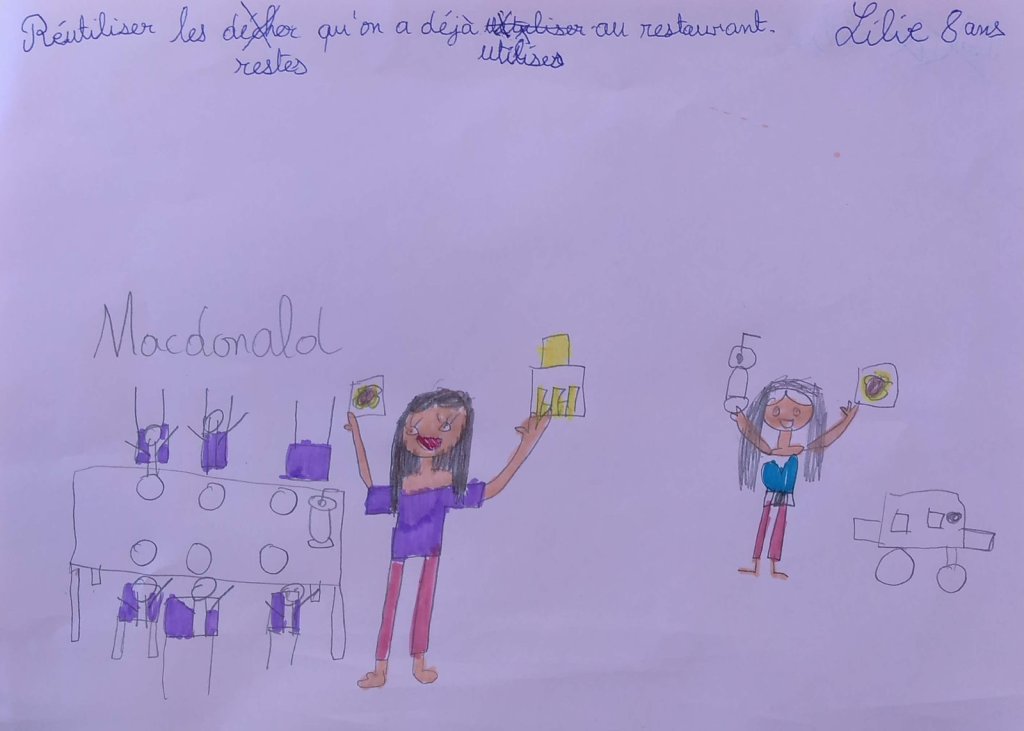 Réutiliser les décher qu'on a déjà utiliser au restaurant. Lilie 8 ans
restes utilisés
Macdonald